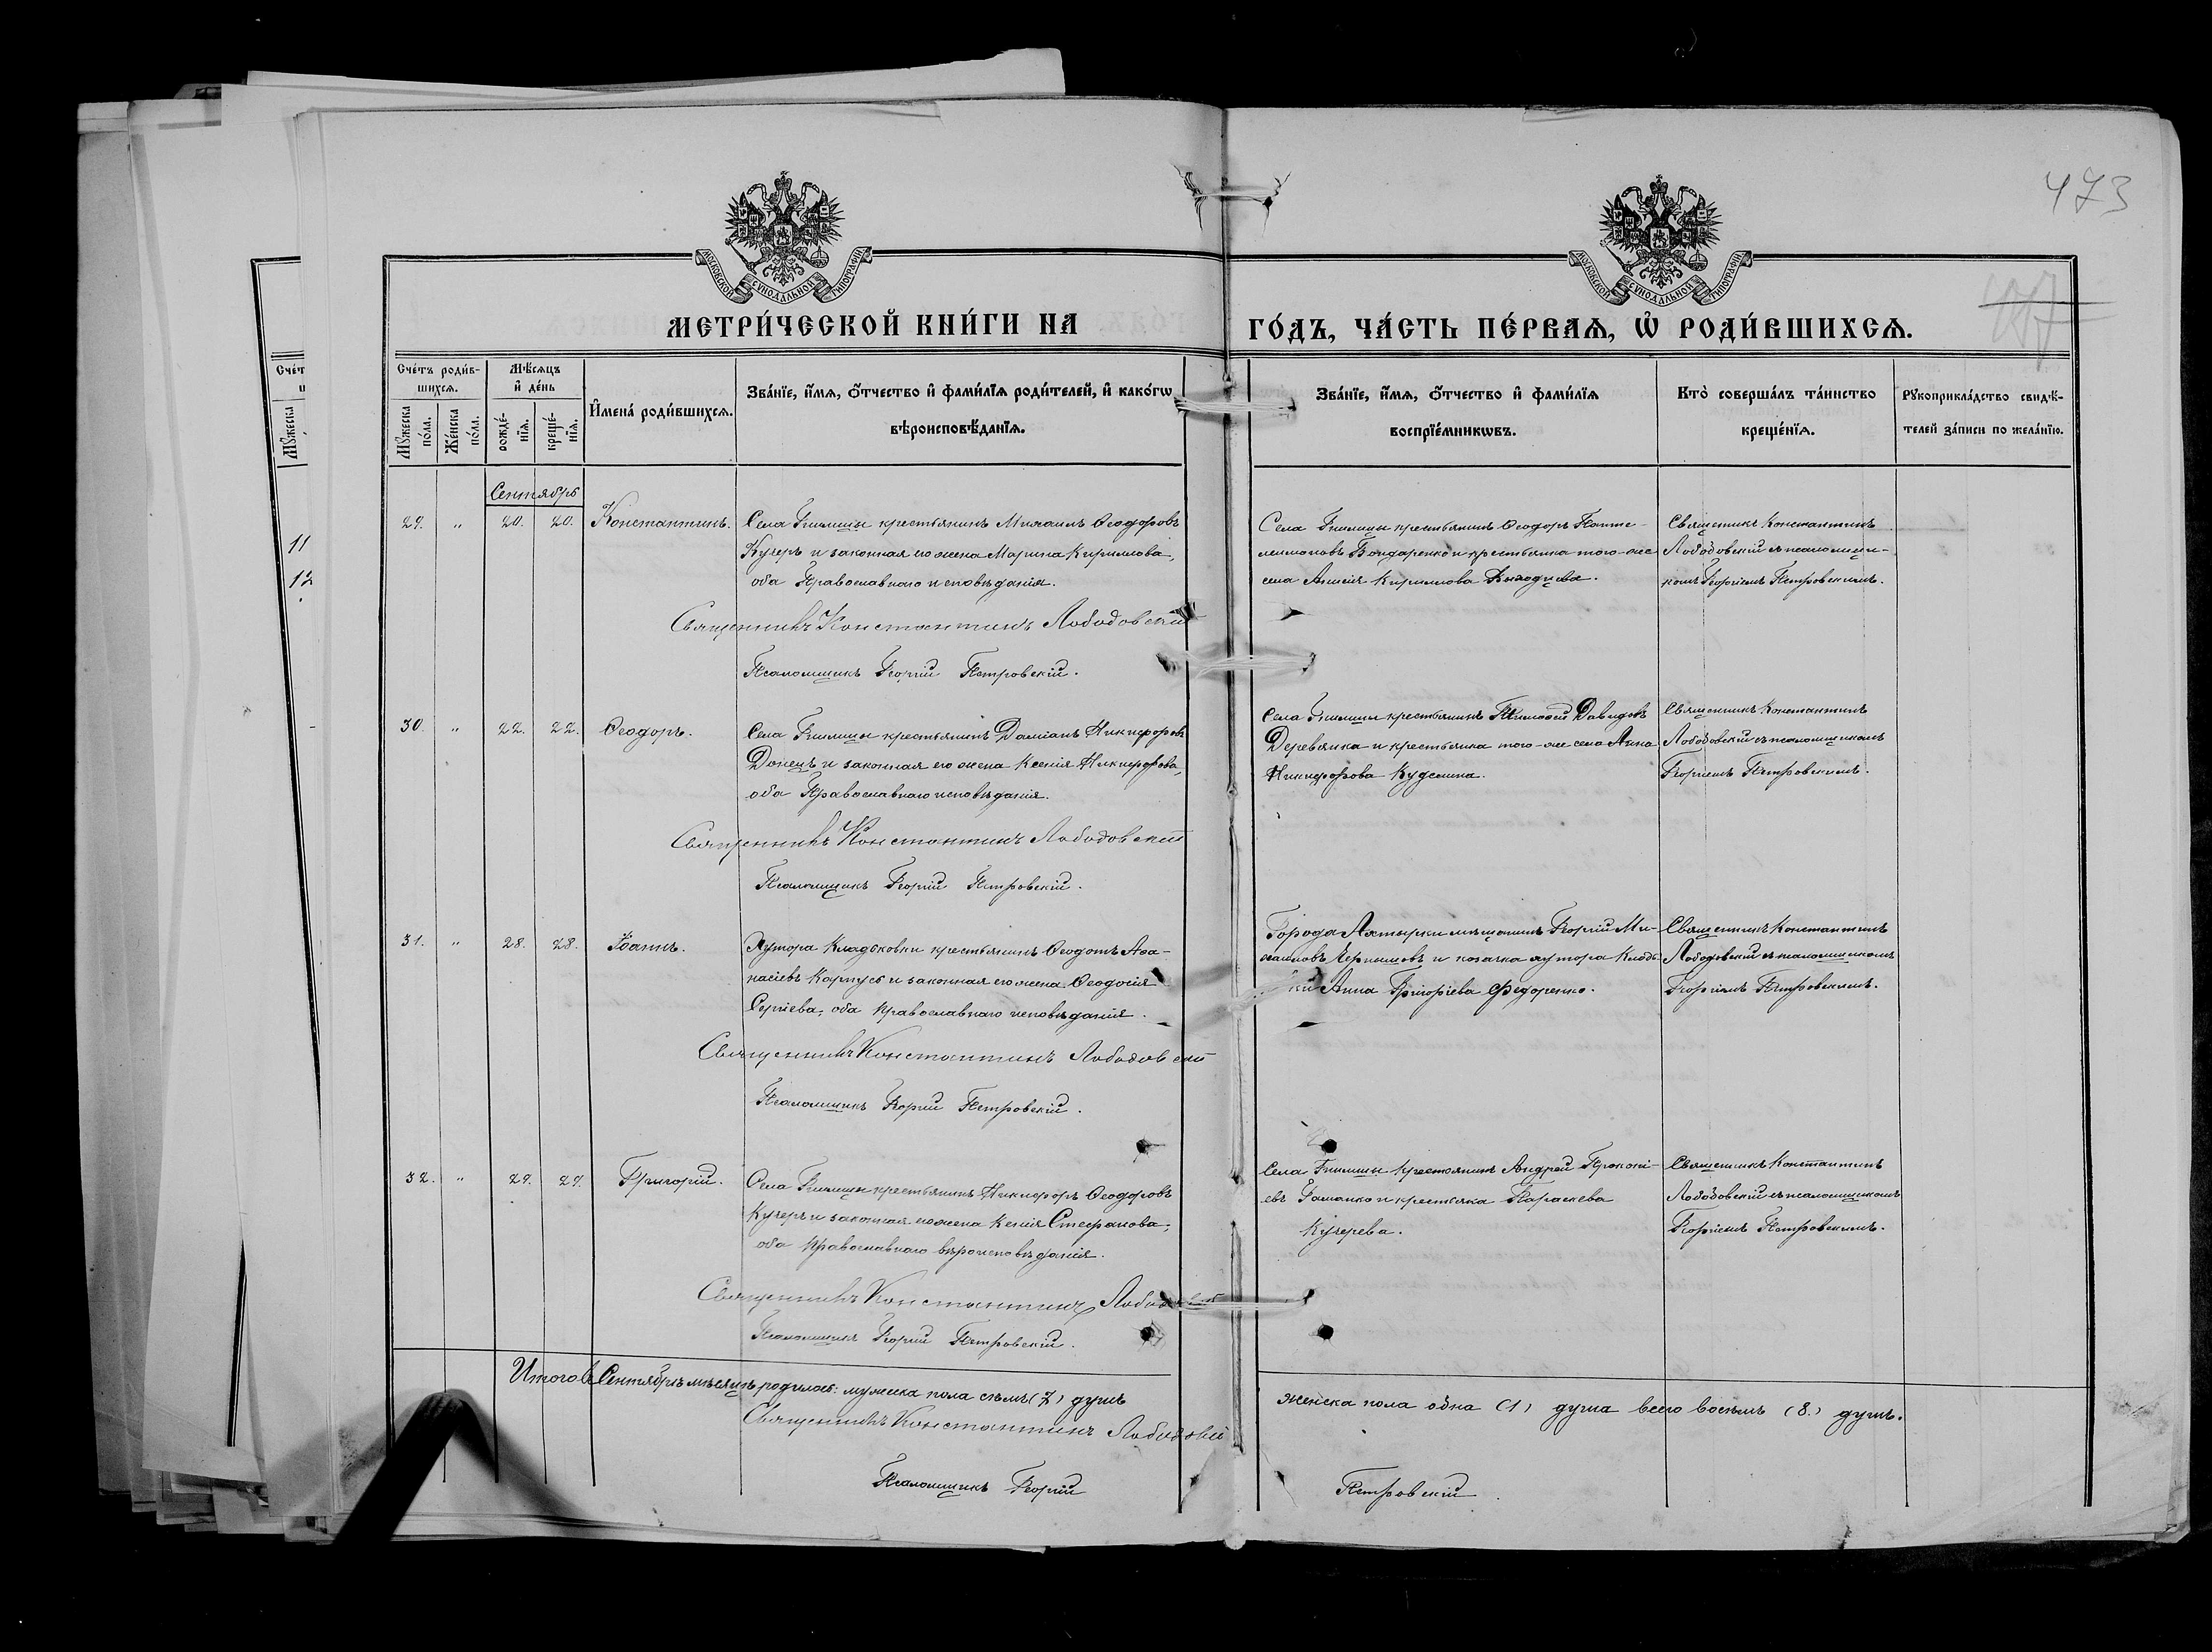 473
МОСКОВСКОЙ СУНОДАЛЬНОЙ ТИПОГРАФІИ
МОСКОВСКОЙ СУНОДАЛЬНОЙ ТИПОГРАФІИ
МЕТРИ́ЧЕСКОЙ КНИ́ГИ НА ГО́ДЪ, ЧА́СТЬ ПЕ́РВАѦ, Ѡ҆ РОДИ́ВШИХСѦ.
Сче́тъ роди́в-
шихсѧ.
Мꙋ́жеска по́ла.
Же́нска по́ла.
Мѣ́сѧцъ и҆ де́нь
рожде́нїѧ.
креще́нїѧ.
И҆мена́ роди́вшихсѧ.
Зва́нїе, и҆́мѧ, ѻ҆́тчество и҆ фами́лїѧ роди́телей, и҆ како́гѡ
вѣроисповѣ́данїѧ.
Зва́нїе, и҆́мѧ, ѻ҆́тчество и҆ фами́лїѧ
воспрїе́мникѡвъ.
Кто̀ соверша́лъ та́инство
креще́нїѧ.
Рꙋкоприкла́дство свидѣ́-
телей за́писи по жела́нїю.
11
12
Сентябрь
29. " 20. 20. Константинъ.
Села Гнилицы крестьянинъ Михаилъ Ѳеодоровъ
Кучеръ и законная его жена Марина Кириллова,
оба Православнаго исповѣданія.
Священникъ Константинъ Лободовскій
Псаломщикъ Георгій Петровскій.
Села Гнилицы крестьянинъ Ѳеодоръ Панте-
леимоновъ Бондаренко и крестьянка того-же
села Кириллова
Священникъ Константинъ
Лободовскій съ псаломщи-
комъ Георгіемъ Петровскимъ.
30. " 22. 22. Ѳеодоръ.
Села Гнилицы крестьянинъ Даміанъ Никифоровъ
Донецъ и законная его жена Ксенія Никифорова,
оба Православнаго исповѣданія.
Священникъ Константинъ Лободовскій
Псаломщикъ Георгій Петровскій.
Села Гнилицы крестьянинъ Тимоѳей Давидовъ
Деревянка и крестьянка того-же села Анна
Никифорова
Священникъ Константинъ
Лободовскій съ псаломщикомъ
Георгіемъ Петровскимъ.
31. " 28. 28. Іоаннъ.
Хутора крестьянинъ Ѳеодотъ Аѳа-
насіевъ Карпусь и законная его жена Ѳеодосія
Сергіева, оба православнаго исповѣданія.
Священникъ Константинъ Лободовскій
Псаломщикъ Георгій Петровскій.
Города Ахтырки мѣщанинъ Георгій Ми-
хаиловъ и козачка хутора
Анна Григоріева Федоренко.
Священникъ Константинъ
Лободовскій съ псаломщикомъ
Георгіемъ Петровскимъ.
32. " 29. 29. Григорій.
Села Гнилицы крестьянинъ Никифоръ Ѳеодоровъ
Кучеръ и законная его жена Ксенія Стефанова,
оба православнаго вѣроисповѣданія.
Священникъ Константинъ Лободовскій
Псаломщикъ Георгій Петровскій.
Села Гнилицы крестьянинъ Андрей Прокопі-
евъ и крестьянка Параскева
Кучерева.
Священникъ Константинъ
Лободовскій съ псаломщикомъ
Георгіемъ Петровскимъ.
Итого въ Сентябрѣ мѣсяцѣ родилось: мужеска пола семь (7) душъ женска пола одна (1) душа всего восемь (8.) душъ.
Священникъ Константинъ Лободовскій
Псаломщикъ Георгій Петровскій